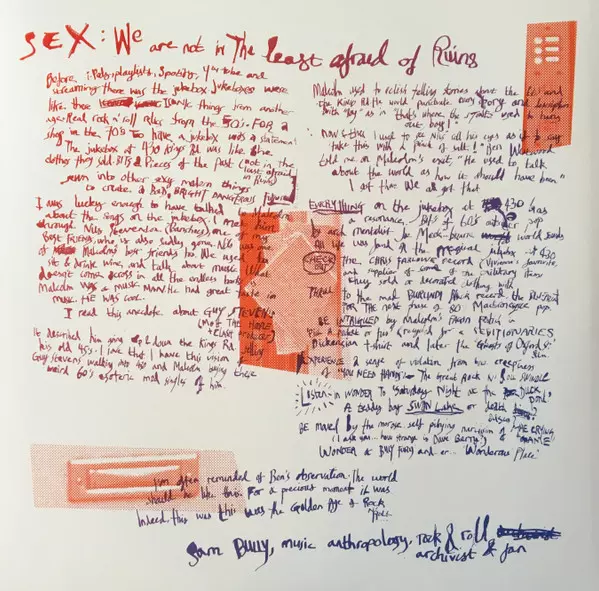 SEX: We are not in The least afraid of Ruins
Before i-Pods, playlists, Spotify, You tube and
streaming there was the jukebox. Jukeboxes were
like these iconic things from another
age. Real rock n' roll relics from the 50's. FOR a
shop in the 70's to have a jukebox was a statement!
The jukebox at 430 Kings Rd was like the
clothes they sold. BITS & Pieces of the past (not in the
least afraid
of Ruins)
sewn into other sexy modern things
to create a BOLD, BRIGHT, DANGEROUS Future
I was lucky enough to have talked Malcolm
about the songs on the jukebox. I met him
through Nils Stevenson (Banshees) one of my
BEST FRIENDS who is also sadly gone. Nils was one
of Malcolm's best friends too. We used to
sit & drink wine, and talk about music. What
doesn't come across in all the endless books
Malcolm was a music MAN. He had great taste in
music. HE was cool.
I read this anecdote about GUY STEVENS
(MOTT THE HOOPLE,
CLASH producer)
It described him going up & down the Kings Rd
his old 45s. I love that I have this vision of
Guy Stevens walking into 430 and Malcolm buying these
weird 60's esoteric mod singles of him.
Malcolm used to relish telling stories about the 60's and
the Kings Rd. He would punctuate every story and description
with "boy" as in "that's where the STONES used to hang
out boy!"
take this with a pinch of salt!" Ben
told me on Malcolm's exit, "He used to talk
about the world as how it should have been"
I got that. We all got that
EVERYTHING on the jukebox at 430 has
a resonance. Bits of 60's
All life was found in the magical jukebox at 430
CHECK
OUT
the CHRIS FARLOWE record (Vivienne's favourite,
and supplier of some of the military items
they sold or decorated clothing with
THRILL
to the mad BURUNDI Black record, the BLUEPRINT
FOR THE noise
BE INTRIGUED by Malcolm's Fagin fetish in
for a SEDITIONARIES
Dickensian t-shirt and later the Ghosts of Oxford St.
film.
EXPERIENCE a sense of violation from the creepiness
of YOU NEED HANDS - The Great Rock N' Roll SWINDLE
Listen in WONDER to Saturday Night at the DUCK
POND
A teddy boy SWAN Lake or death
disco?
BE moved by the morose, self pitying narcissism of THE CRYING
GAME
(I ask you... how strange is Dave Berry?) &
WONDER @ BILLY FURY and er... Wonderous Place
I'm often reminded of Ben's observation. The world
should be like this. For a precious moment it was
Indeed, this was the Golden Age of Rock
n Roll
Sam Bully, music anthropology, rock & roll
archivist & fan